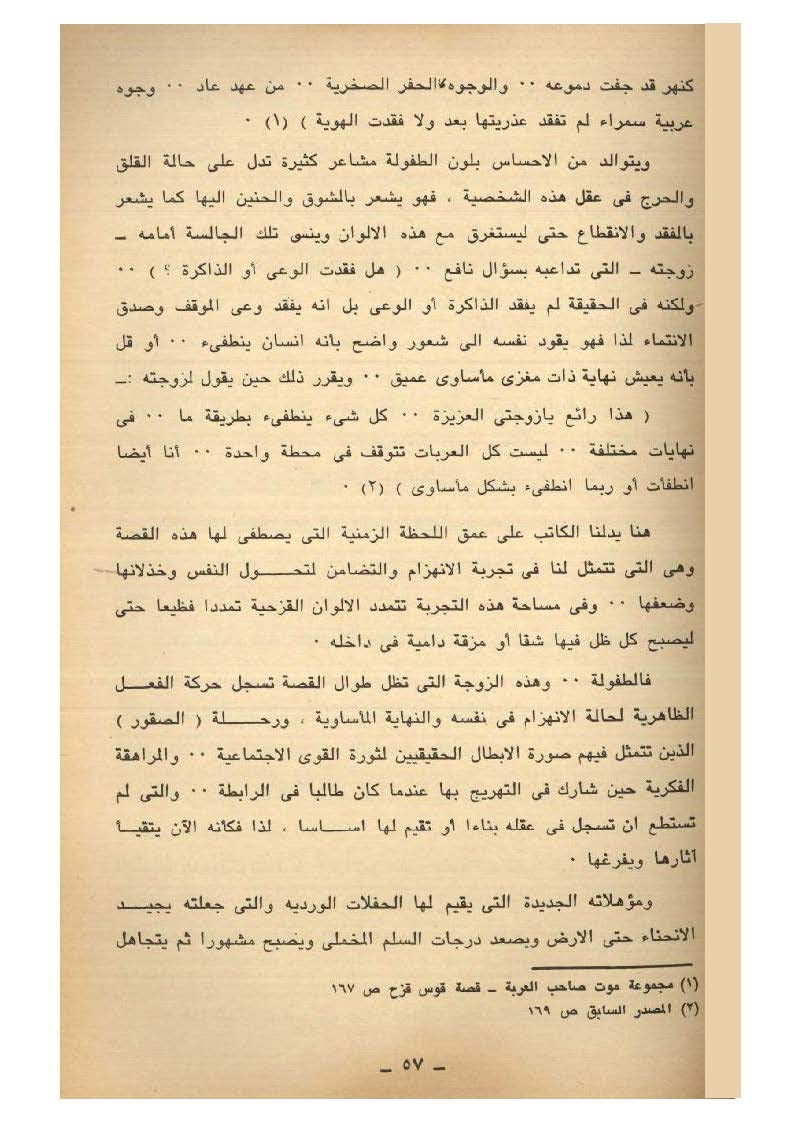 كنهر قد جفت دموعه ٠٠ والوجوه كالحفر الصخرية ٠٠ من عهد عاد ٠٠ وجوه
عربية سمراء لم تفقد عذريتها بعد ولا فقدت الهوية ) (١) ٠
ويتوالد من الاحساس بلون الطفولة مشاعر كثيرة تدل على حالة القلق
والحرج فى عقل هذه الشخصية ، فهو يشعر بالشوق والحنين اليها كما يشعر
بالفقد والانقطاع حتى ليستغرق مع هذه الالوان وينسى تلك الجالسة أمامه ــ
زوجته ــ التى تداعبه بسؤال نافع ٠٠ ( هل فقدت الوعى أو الذاكرة ؟ ) ٠٠
ولكنه فى الحقيقة لم يفقد الذاكرة أو الوعى بل انه يفقد وعى الموقف وصدق
الانتماء لذا فهو يقود نفسه الى شعور واضح بأنه انسان ينطفىء ٠٠ أو قل
بأنه يعيش نهاية ذات مغزى مأساوى عميق ٠٠ ويقرر ذلك حين يقول لزوجته :ــ
( هذا رائع يازوجتى العزيزة ٠٠ كل شىء ينطفىء بطريقة ما ٠٠ فى
نهايات مختلفة ٠٠ ليست كل العربات تتوقف فى محطة واحدة ٠٠ أنا أيضا
انطفأت أو ربما انطفىء بشكل مأساوى ) (٢) ٠
هنا يدلنا الكاتب على عمق اللحظة الزمنية التى يصطفى لها هذه القصة
وهى التى تتمثل لنا فى تجربة الانهزام والتضامن لتحـــــول النفس وخذلانها
وضعفها ٠٠ وفى مساحة هذه التجربة تتمدد الالوان القزحية تمددا فظيعا حتى
ليصبح كل ظل فيها شقا أو مزقة دامية فى داخله ٠
فالطفولة ٠٠ وهذه الزوجة التى تظل طوال القصة تسجل حركة الفعـــل
الظاهرية لحالة الانهزام فى نفسه والنهاية المأساوية ، ورحـــــلة ( الصقور )
الذين تتمثل فيهم صورة الابطال الحقيقيين لثورة القوى الاجتماعية ٠٠ والمراهقة
الفكرية حين شارك فى التهريج بها عندما كان طالبا فى الرابطة ٠٠ والتى لم
تستطع ان تسجل فى عقله بناءا أو تقيم لها اســـاسا ، لذا فكأنه الآن يتقيـــأ
آثارها ويفرغها ٠
ومؤهلاته الجديدة التى يقيم لها الحفلات الورديه والتى جعلته يجيـــد
الانحناء حتى الارض ويصعد درجات السلم المخملى ويصبح مشهورا ثم يتجاهل
(١) مجموعة موت صاحب العربة ــ قصة قوس قزح ص ١٦٧
(٢) المصدر السابق ص ١٦٩
ــ ٥٧ ــ